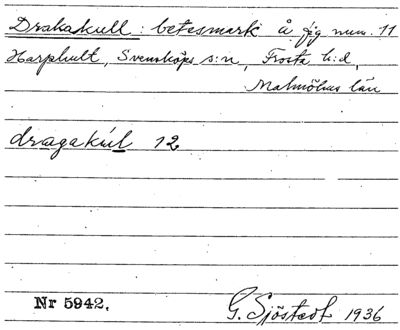 Drakakull : betesmark å äg. num. 11
Harphult, Svensköps s:n, Frosta h:d,
Malmöhus län
dragakúl 12
Nr 5942.
G. Sjöstedt 1936